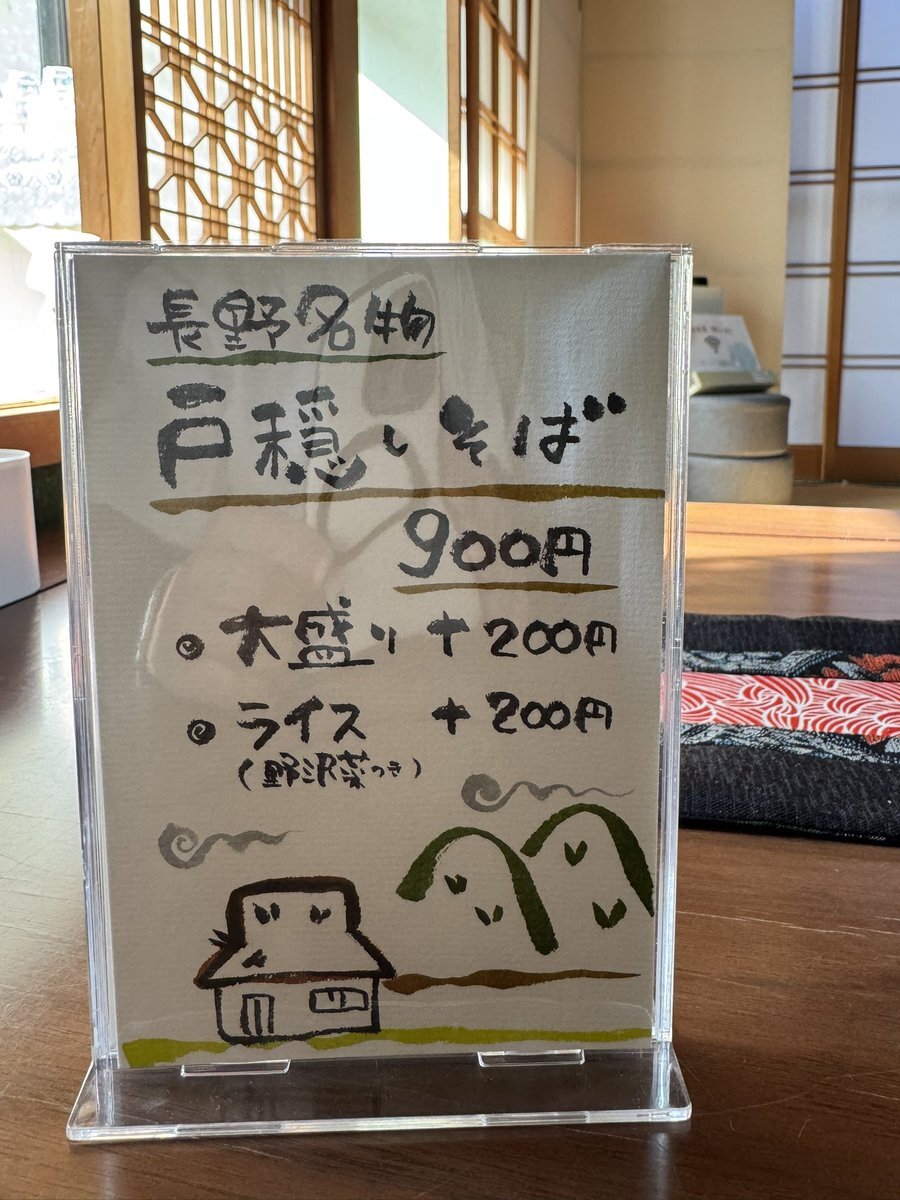 長野名物
戸穏しそば
900円
◎ 大盛り +200円
◎ ライス +200円
(野沢菜つき)